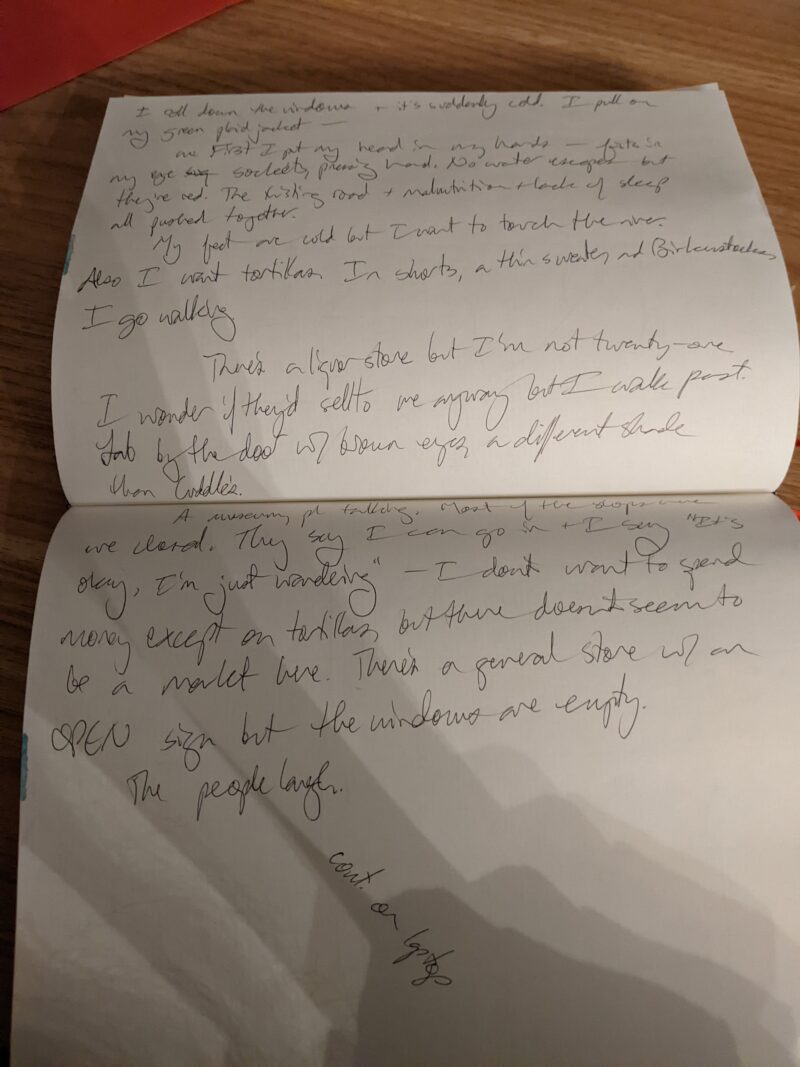 I roll down the windows + it's suddenly cold. I pull on
my green plaid jacket —
First I put my head in my hands — fists in
my eye sockets, pressing hard. No water escapes but
they're red. The twisting road + malnutrition + lack of sleep
all pushed together.
My feet are cold but I want to touch the river.
Also I want tortillas. In shorts, a thin sweater, and Birkenstocks,
I go walking.
There's a liquor store but I'm not twenty-one
I wonder if they'd sell to me anyway but I walk past.
Lab by the door w/ brown eyes, a different shade
than
A museum, ppl talking. Most of the shops
are closed. They say I can go in + I say "It's
okay, I'm just wandering" — I don't want to spend
money except on tortillas, but there doesn't seem to
be a market here. There's a general store w/ an
OPEN sign but the windows are empty.
The people laugh.
cont. on laptop